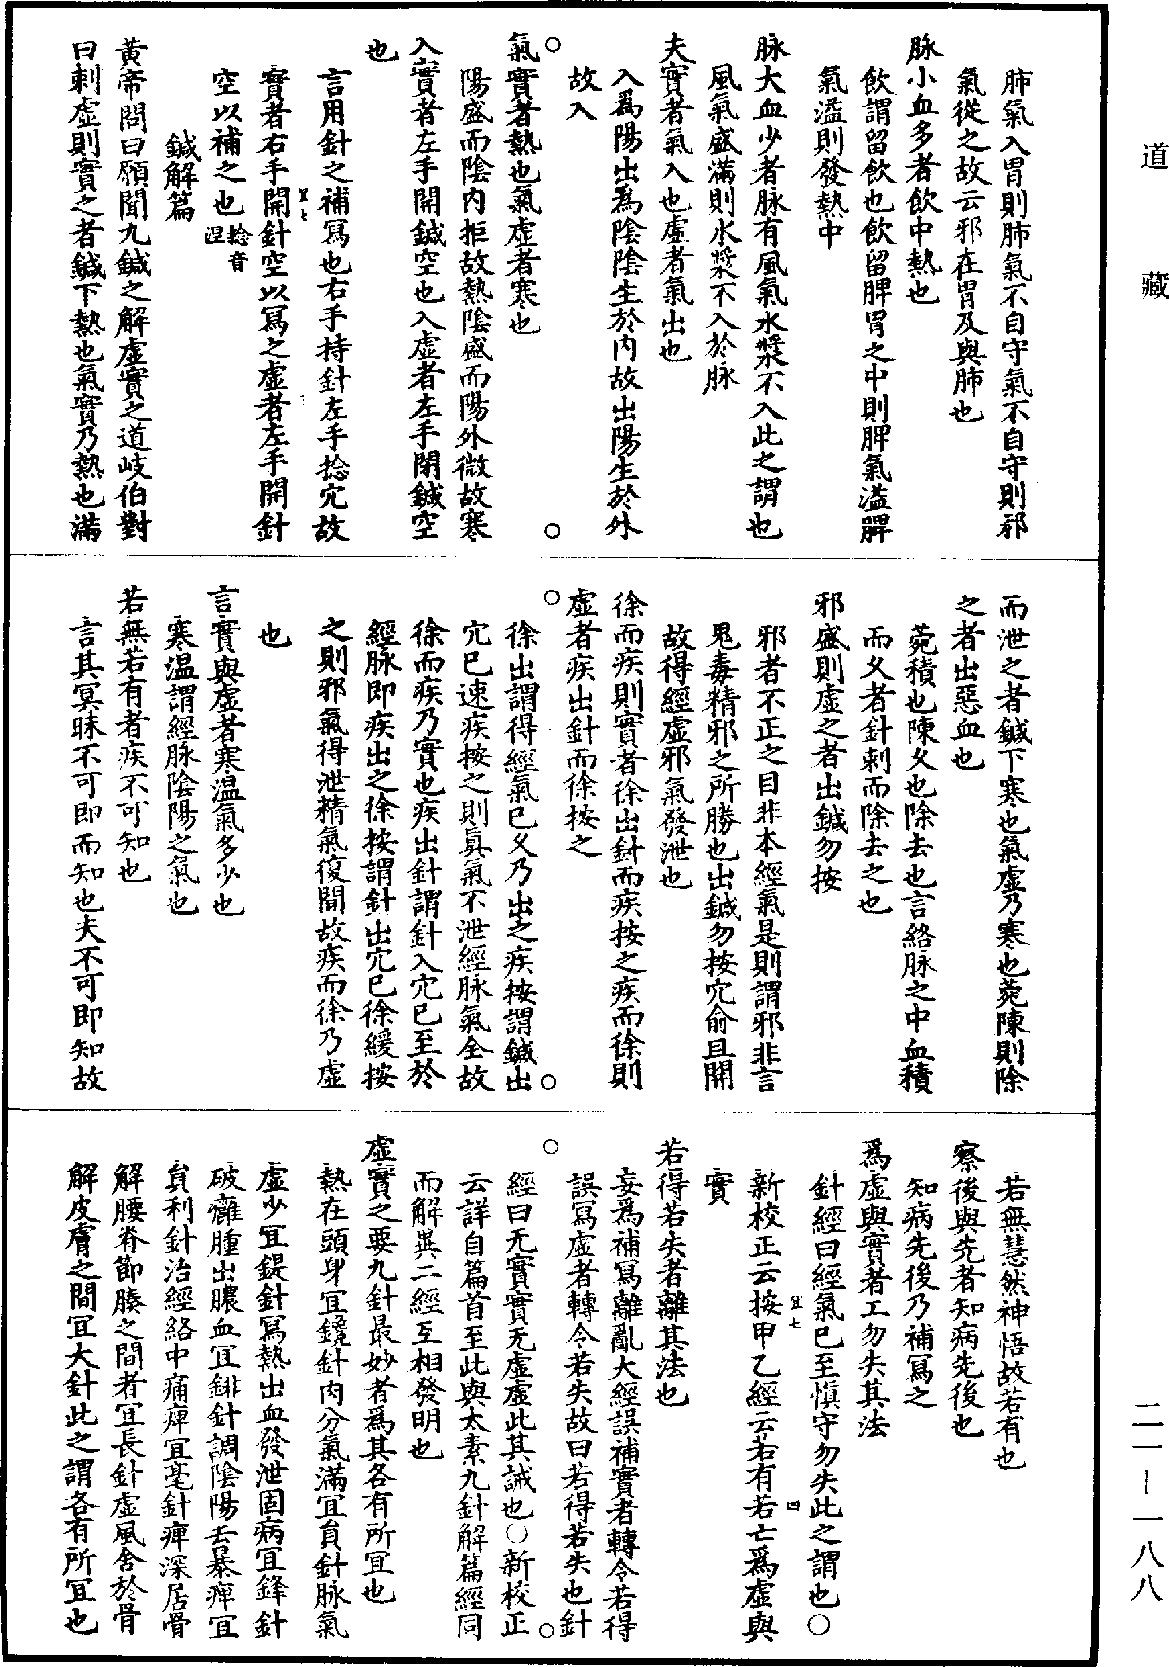 道藏
肺氣入胃則肺氣不自守氣不自守則邪
氣從之故云邪在胃及與肺也
脉小血多者飲中熱也
飲謂留飲也飲留脾胃之中則脾氣溢脾
氣溢則發熱中
脉大血少者脉有風氣水漿不入此之謂也
風氣盛滿則水漿不入於脉
夫實者氣入也虛者氣出也
入爲陽出爲陰陰生於内故出陽生於外
故入
氣實者熱也氣虛者寒也
陽盛而陰内拒故熱陰盛而陽外微故寒
入實者左手開鍼空也入虛者左手閉鍼空
也
言用針之補寫也右手持針左手捻穴故
實者右手開針空以寫之虛者左手開針
空以補之也捻音涅
鍼解篇
黄帝問曰願聞九鍼之解虛實之道岐伯對
曰刺虛則實之者鍼下熱也氣實乃熱也滿
而泄之者鍼下寒也氣虛乃寒也菀陳則除
之者出惡血也
菀積也陳久也除去也言絡脉之中血積
而久者針刺而除去之也
邪盛則虛之者出鍼勿按
邪者不正之目非本經氣是則謂邪非言
鬼毒精邪之所勝也出鍼勿按穴俞且開
故得經虛邪氣發泄也
徐而疾則實者徐出針而疾按之疾而徐則
虛者疾出針而徐按之
徐出謂得經氣已久乃出之疾按謂鍼出
穴已速疾按之則真氣不泄經脉氣全故
徐而疾乃實也疾出針謂針入穴已至於
經脉即疾出之徐按謂針出穴已徐緩按
之則邪氣得泄精氣復閒故疾而徐乃虛
也
言實與虛者寒温氣多少也
寒温謂經脉陰陽之氣也
若無若有者疾不可知也
言其冥昧不可即而知也夫不可即知故
若無慧然神悟故若有也
察後與先者知病先後也
知病先後乃補寫之
爲虛與實者工勿失其法
針經曰經氣已至慎守勿失此之謂也○
新校正云按甲乙經云若有若亡爲虛與
實
若得若失者離其法也
妄爲補寫離亂大經誤補實者轉令若得
誤寫虛者轉令若失故曰若得若失也針
經曰无實實无虛虛此其誡也○新校正
云詳自篇首至此與太素九針解篇經同
而解異二經互相發明也
虛實之要九針最妙者爲其各有所宜也
熱在頭身宜鑱針肉分氣滿宜員針脉氣
虛少宜鍉針寫熱出血發泄固病宜鋒針
破癰腫出膿血宜鈹針調陰陽去暴痺宜
員利針治經絡中痛痺宜毫針痺深居骨
解腰脊節腠之間者宜長針虛風舍於骨
解皮膚之間宜大針此之謂各有所宜也
二一-一八八